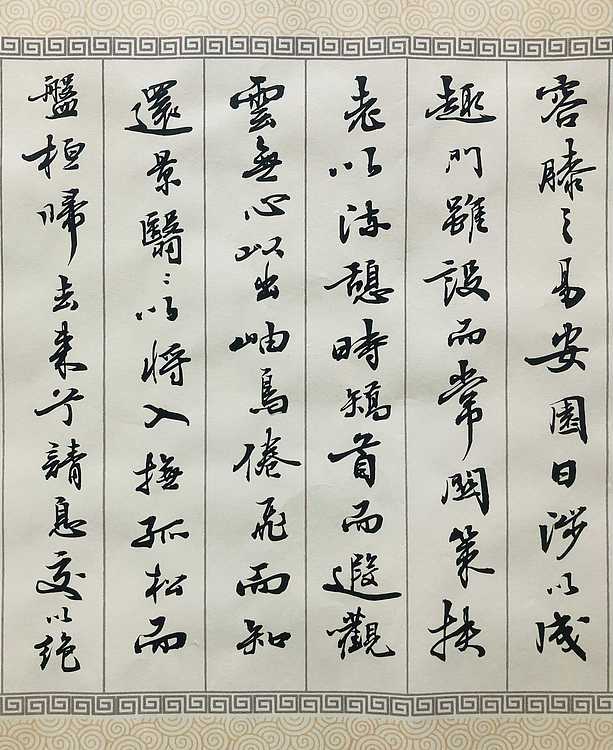 容膝之易安園日涉以成
趣門雖設而常關策扶
老以流憩時矯首而遐觀
雲無心以出岫鳥倦飛而知
還景翳〻以將入撫孤松而
盤桓歸去來兮請息交以絕